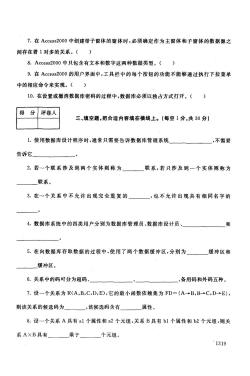 7. 在 Access2000 中创建带子窗体的窗体时，必须确定作为主窗体和子窗体的数据源之
间存在着 1 对多的关系。（　　）
8. Access2000 中只包含有文本和数字这两种数据类型。（　　）
9. 在 Access2000 的用户界面中，工具栏中的每个按钮的功能不能够通过执行下拉菜单
中的相应命令来实现。（　　）
10. 在设置或撤消数据库密码的过程中，数据库必须以独占方式打开。（　　）
得 分 评卷人
二、填空题，把合适内容填在横线上。（每空 1 分，共 24 分）
1. 使用数据库设计程序时，通常只需要告诉数据库管理系统________，不需要
告诉它________。
2. 若一个联系涉及到两个实体则称为________联系，若只涉及到一个实体则称为
________联系。
3. 在一个关系中不允许出现完全重复的________，也不允许出现具有相同名字的
________。
4. 数据库系统中的四类用户分别为数据库管理员、数据库设计员、________和
________。
5. 在向数据库存取数据的过程中，使用了两个数据缓冲区，分别为________缓冲区和
________缓冲区。
6. 关系中的码可分为超码、________、________、备用码和外码五种。
7. 设一个关系为 R(A,B,C,D,E)，它的最小函数依赖集为 FD={A→B,B→C,D→E}，
则该关系的候选码为________，该候选码含有________属性。
8. 设一个关系 A 具有 a1 个属性和 a2 个元组，关系 B 具有 b1 个属性和 b2 个元组，则关
系 A×B 具有________乘于________个元组。
1319